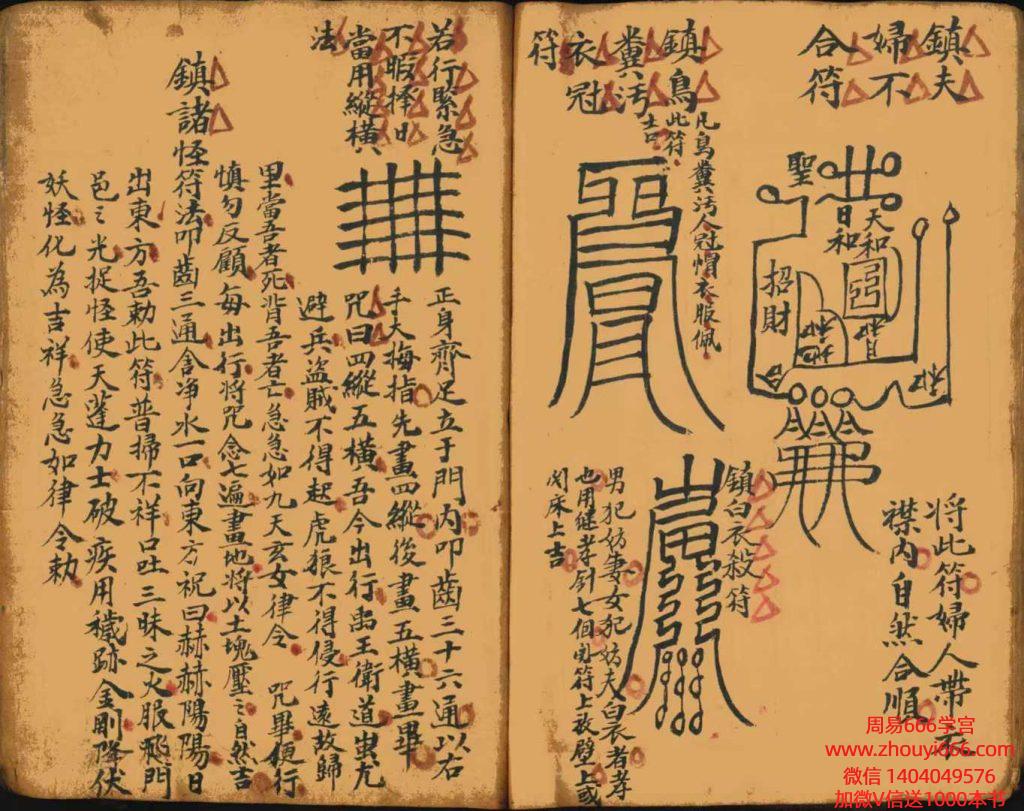 鎮夫
婦不
合符
聖
天和
日和
招財
将此符婦人帶衣
襟內自然合順
鎮鳥
糞汚
衣冠
符
凡鳥糞汚人冠帽衣服佩
此符
吉
鎮白衣殺符
男犯妨妻女犯妨夫白衣者孝
也用継孝針七個
符上放壁上或
床上吉
若行緊急
不暇擇日
當用縱橫
法
正身齊足立于門內叩齒三十六通以右
手大拇指先畫四縱後畫五橫畫畢
咒曰四縱五橫吾今出行禹王衛道蚩尤
避兵盜賊不得起虎狼不得侵行遠故歸
里當吾者死背吾者亡急急如九天玄女律令 咒畢便行
慎勿反顧每出行將咒念七遍畫地將以土塊壓之自然吉
鎮諸怪符法叩齒三通含净水一口向東方祝曰赫赫陽陽日
出東方吾勅此符普掃不祥口吐三昧之火服飛門
邑之光捉怪使天蓬力士破疾用穢跡金剛降伏
妖怪化為吉祥急急如律令勅
周易666学宫
www.zhouyi666.com
微信 1404049576
加微V信送1000本书